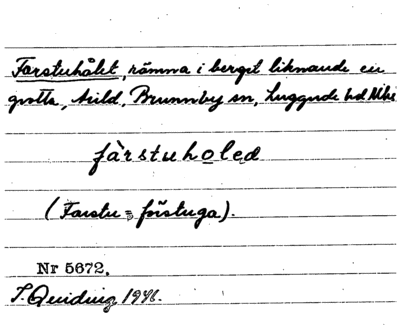 Farstuhålet, rämna i berget liknande en
grotta, Arild, Brunnby sn, Luggude hd Mhs
fàrstuholed
(Farstu = förstuga).
Nr 5672.
S. Quiding 1946.